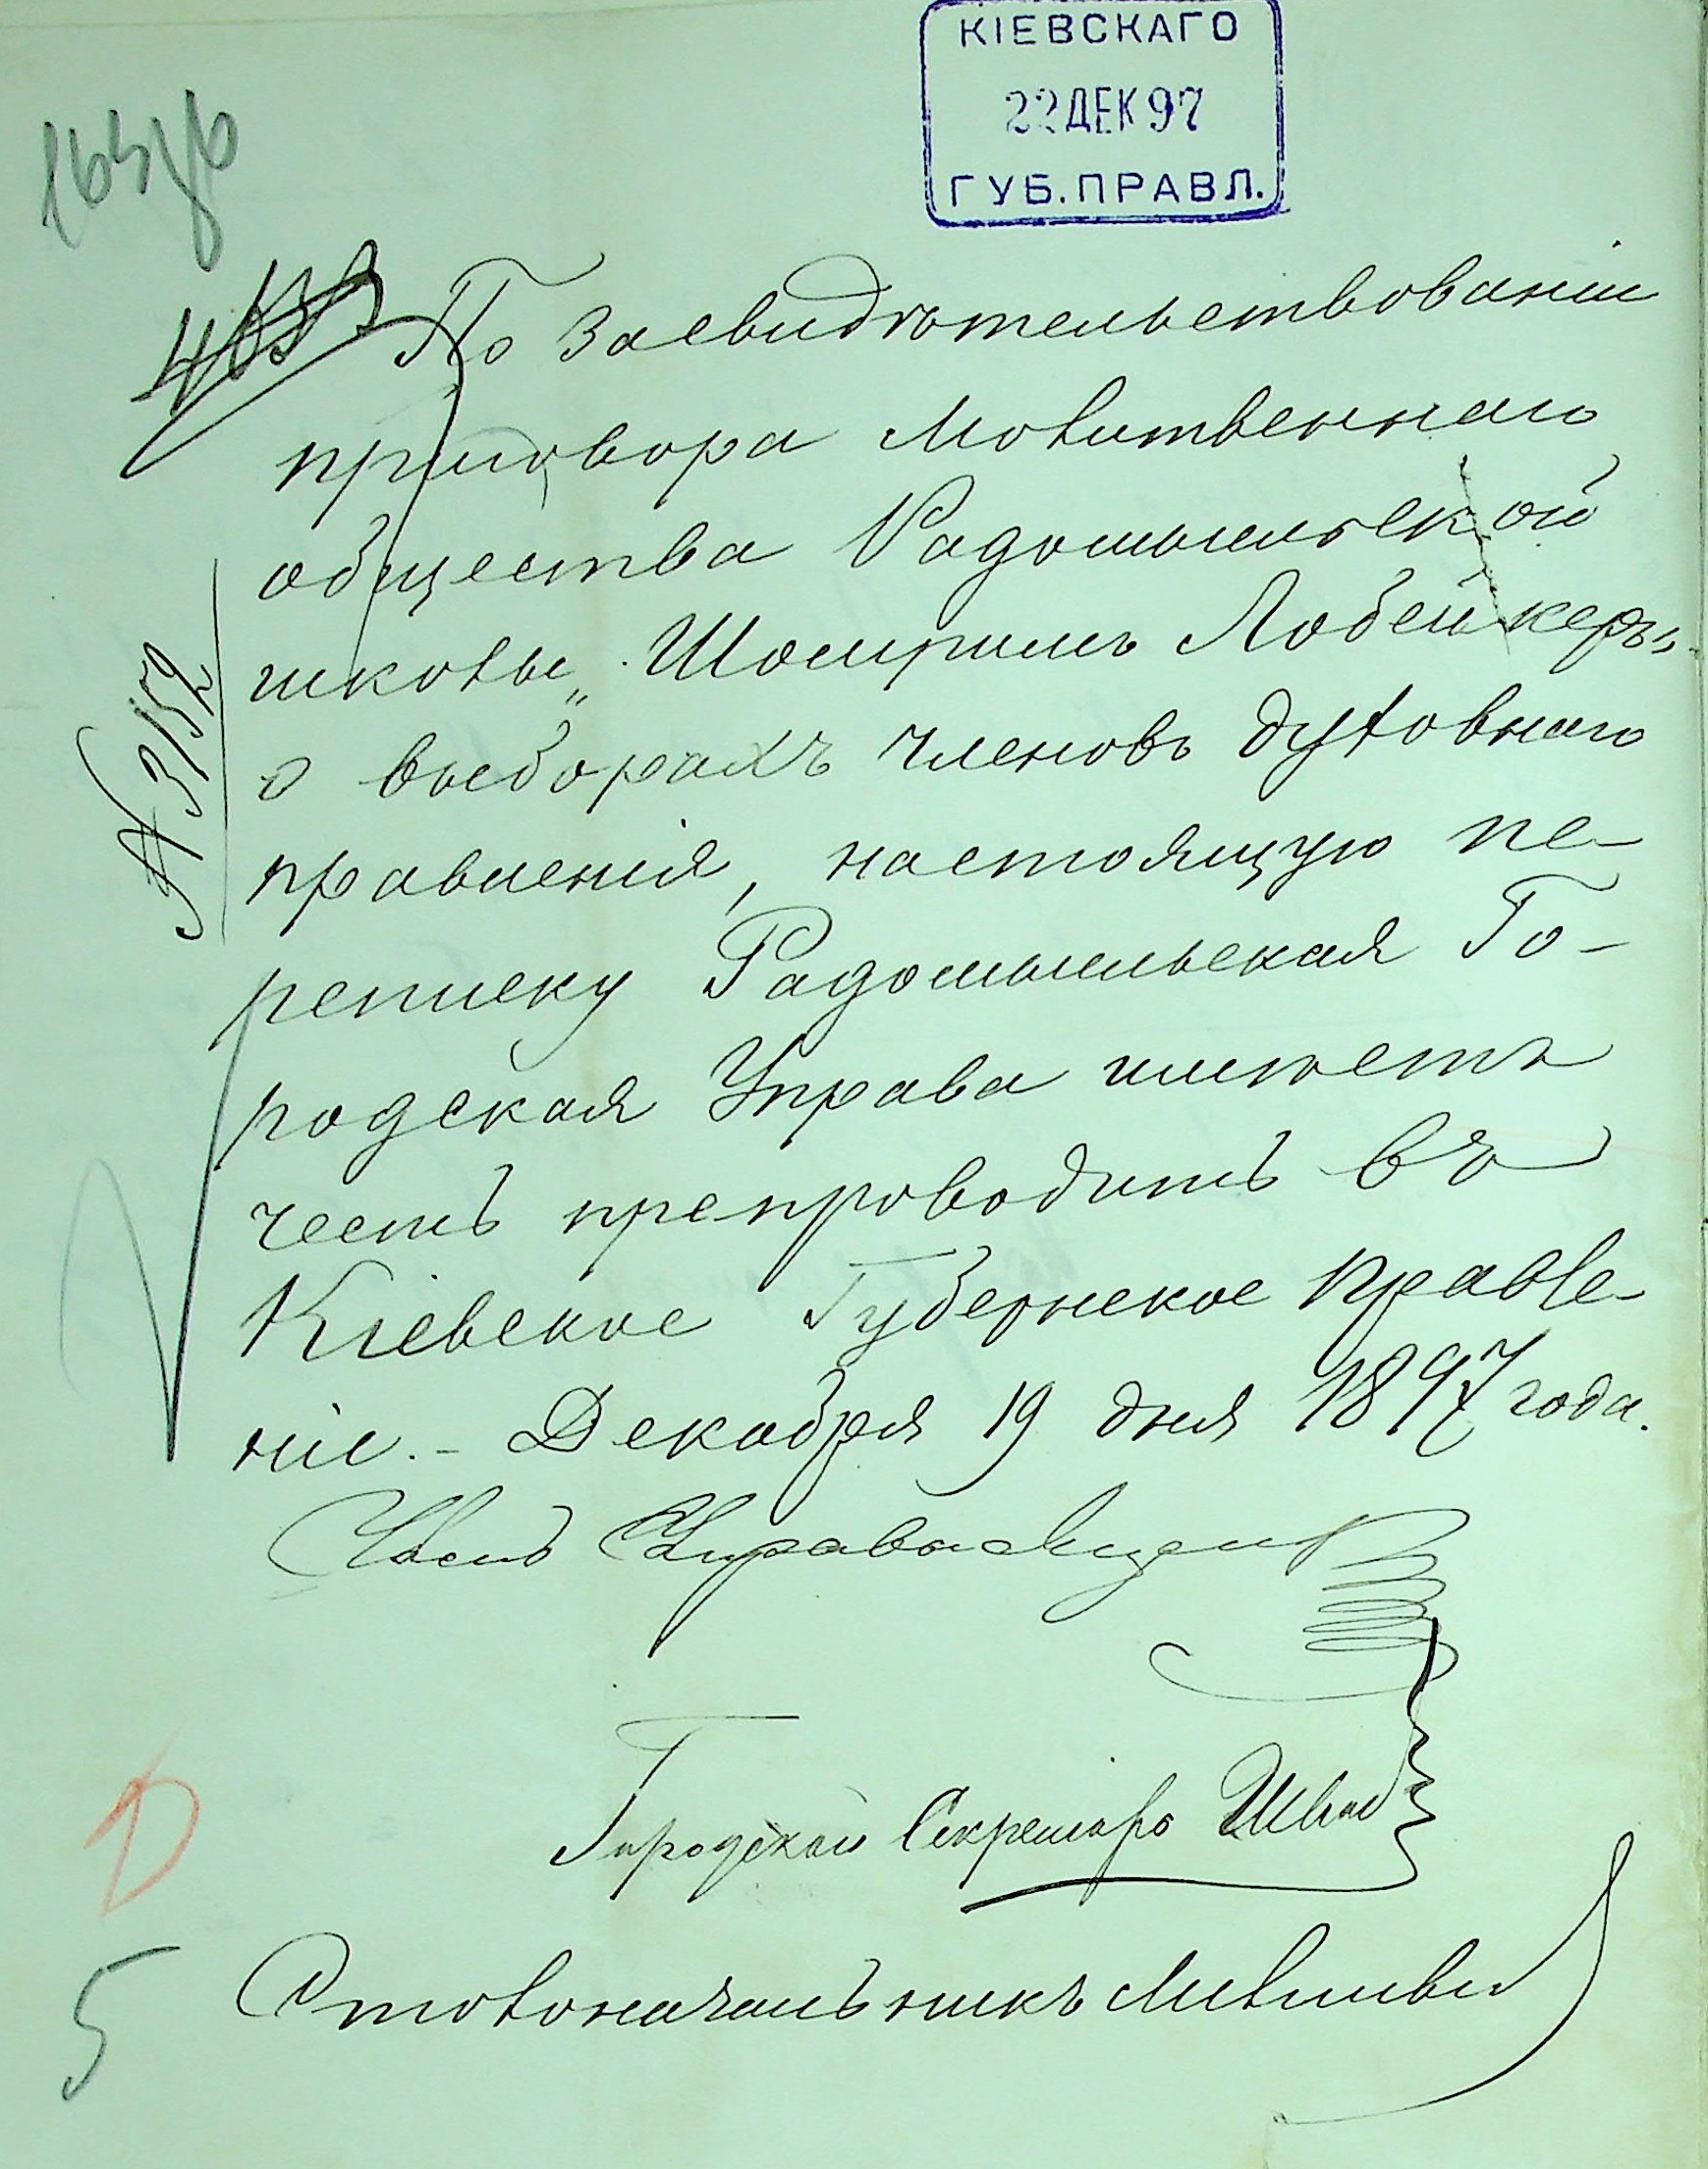 КІЕВСКАГО
22 ДЕК 97
ГУБ. ПРАВЛ.
По засвидѣтельствованіи
приговора Молитвеннаго
общества Радомысльской
школы „Шомримъ Лабейкеръ“
о выборахъ членовъ духовнаго
правленія, настоящую пе-
реписку Радомысльская Го-
родская Управа имѣетъ
честь препроводить въ
Кіевское Губернское Правле-
ніе. - Декабря 19 дня 1897 года.
№ 3152
Членъ Управы
Городской Секретарь
Столоначальникъ
5